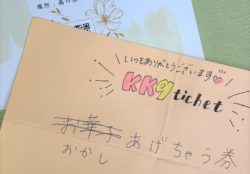 いつもありがとうございます
KK9 tichet
お菓子 あげちゃう券
おかし